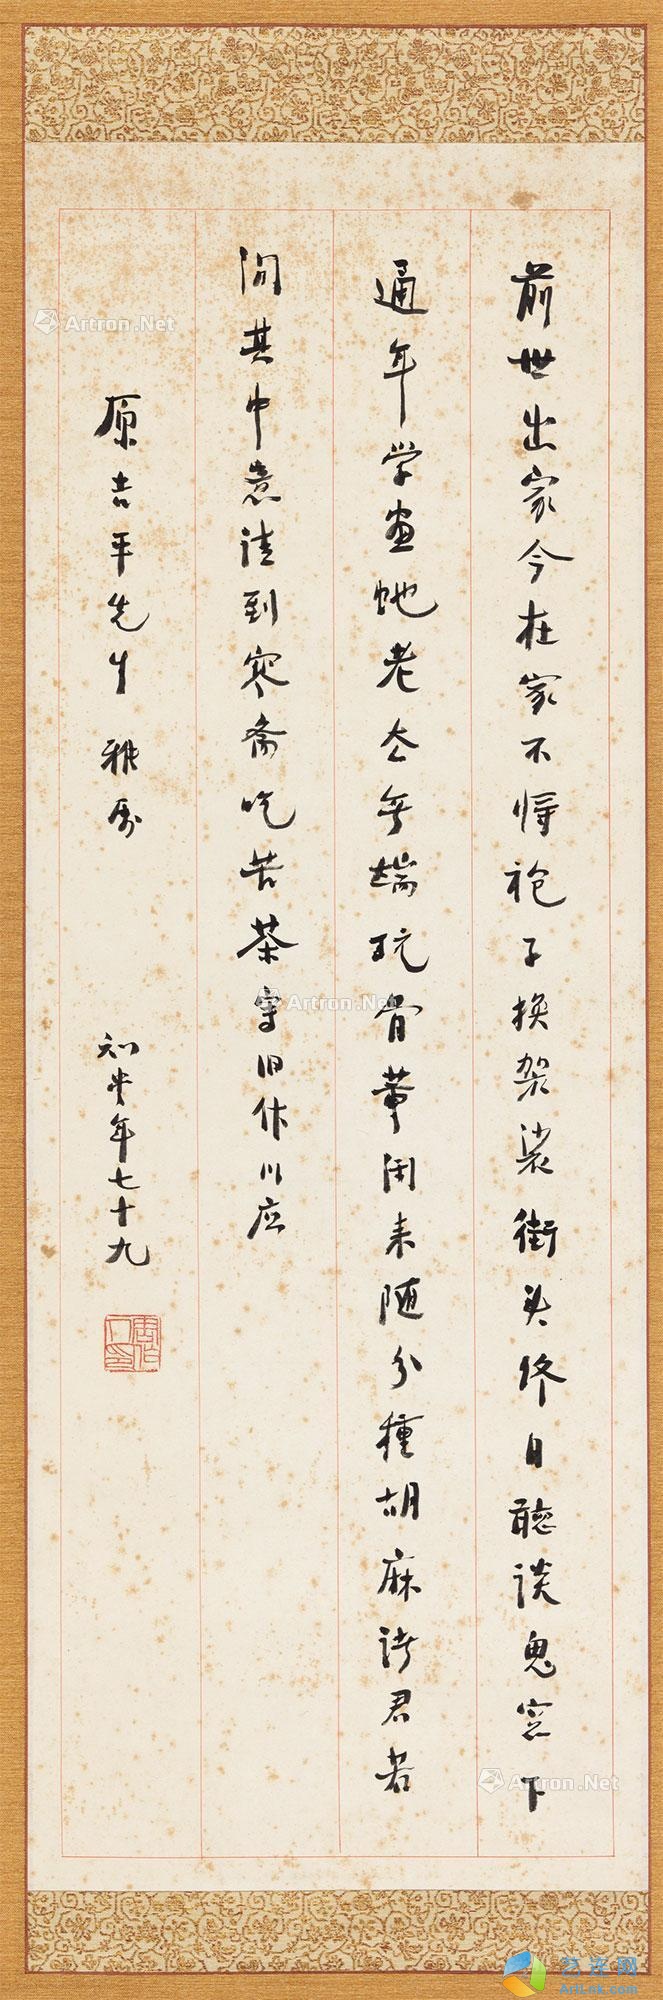 前世出家今在家不将袍子換袈裟街头终日聽谈鬼窓下
通年学画蛇老去無端玩骨董闲来随分種胡麻诸君若
问其中意请到寒斋吃苦茶 写旧作以应
原吉平先生 雅属
知堂年七十九
周作人印
Artron.Net
Artron.Net
Artron.Net
艺连网
ArtLnk.com